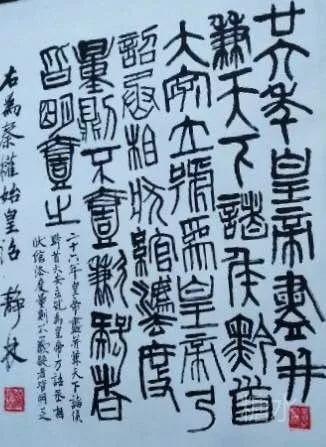 廿六年皇帝盡并
兼天下諸侯黔首
大安立號為皇帝乃
詔丞相狀綰灋度
量則不壹歉疑者
皆明壹之
二十六年皇帝盡并兼天下諸侯
黔首大安立號為皇帝乃詔丞相
法度量則不壹歉疑者皆明之
右為秦權始皇詔 靜